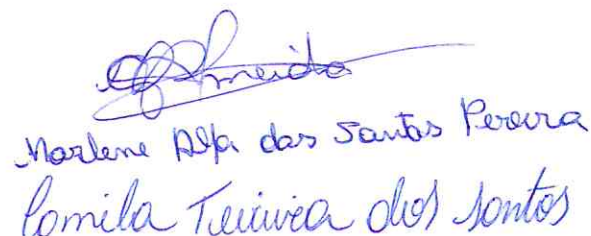 Almeida
Marlene Alfa das Santos Pereira
Camila Teixeira dos Santos